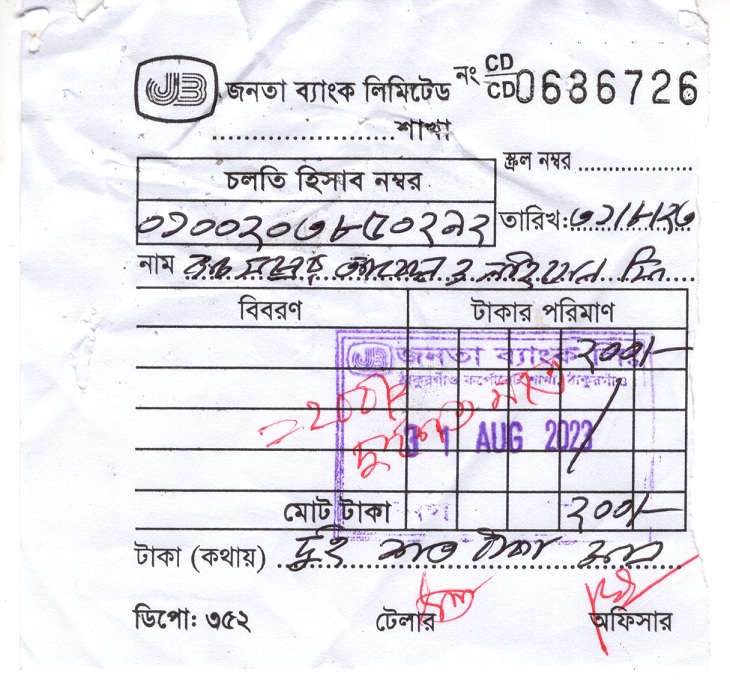 JB জনতা ব্যাংক লিমিটেড নং CD CD 0636726
....................শাখা
স্ক্রল নম্বর ....................
চলতি হিসাব নম্বর
০১০০২০৩৮৫০২৯২
তারিখ: ৩১/৮/২৩
নাম
বিবরণ টাকার পরিমাণ
২০০/-
JB জনতা ব্যাংক
ঠাকুরগাঁও কর্পোরেট শাখা, ঠাকুরগাঁও
31 AUG 2023
মোট টাকা ২০০/-
টাকা (কথায়) দুই শত টাকা মাত্র
ডিপো: ৩৫২ টেলার অফিসার